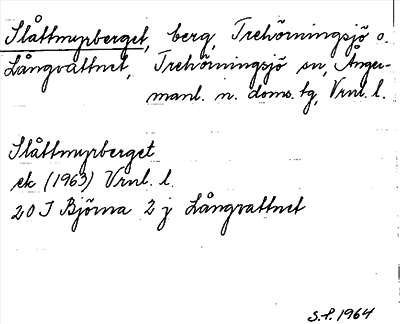 Slåttmyrberget, berg, Trehörningsjö o.
Långvattnet, Trehörningsjö sn, Ånger-
manl. n. doms. tg, Vrnl. l.
Slåttmyrberget
ek (1963) Vrnl. l.
20 I Björna 2 j Långvattnet
S.S. 1964